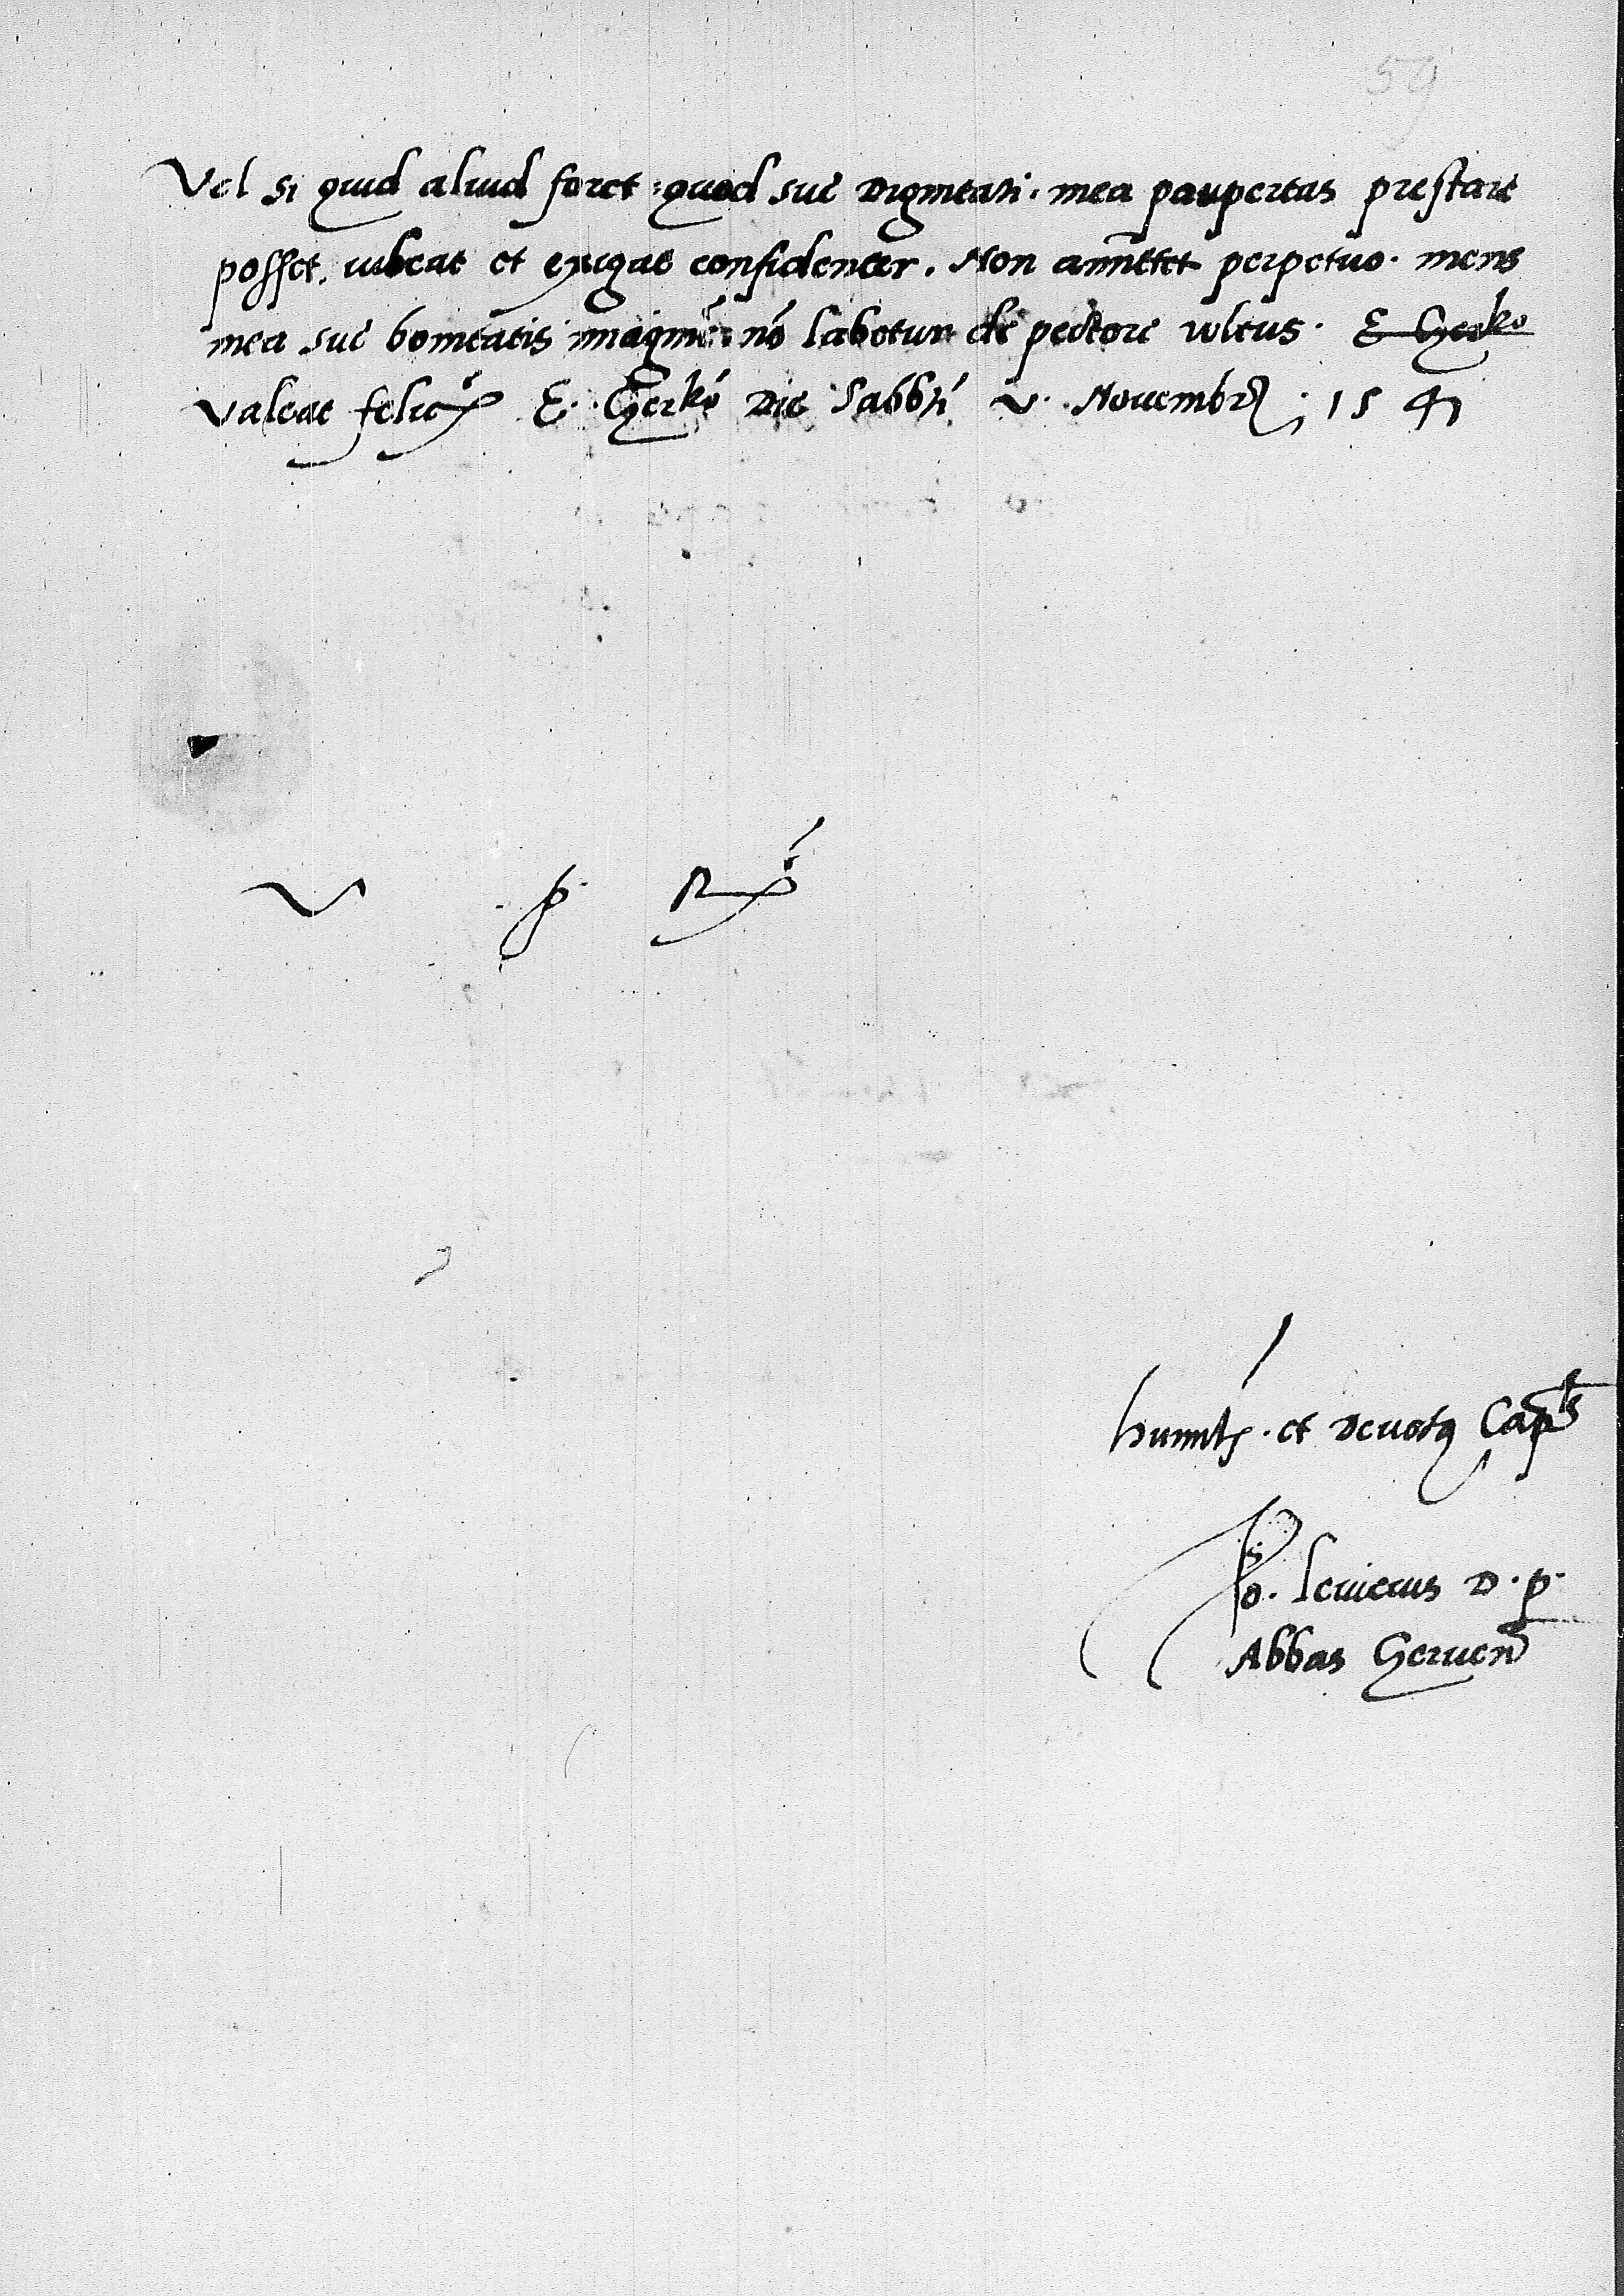 59
Vel si quid aliud foret quod sue Dignitati. mea paupertas prestare
posset. iubeat et exigat confidenter. Non amittet perpetuo. mens
mea sue bonitatis imaginē: nō labetur de pectore vultus. E Gerko
Valeat felicx̃ E. Gerkó Die Sabbti v. Novembr; 1541
V p Rx̃
humils. et Devotq Capls
Jo. D. p.
Abbas Geruen̄